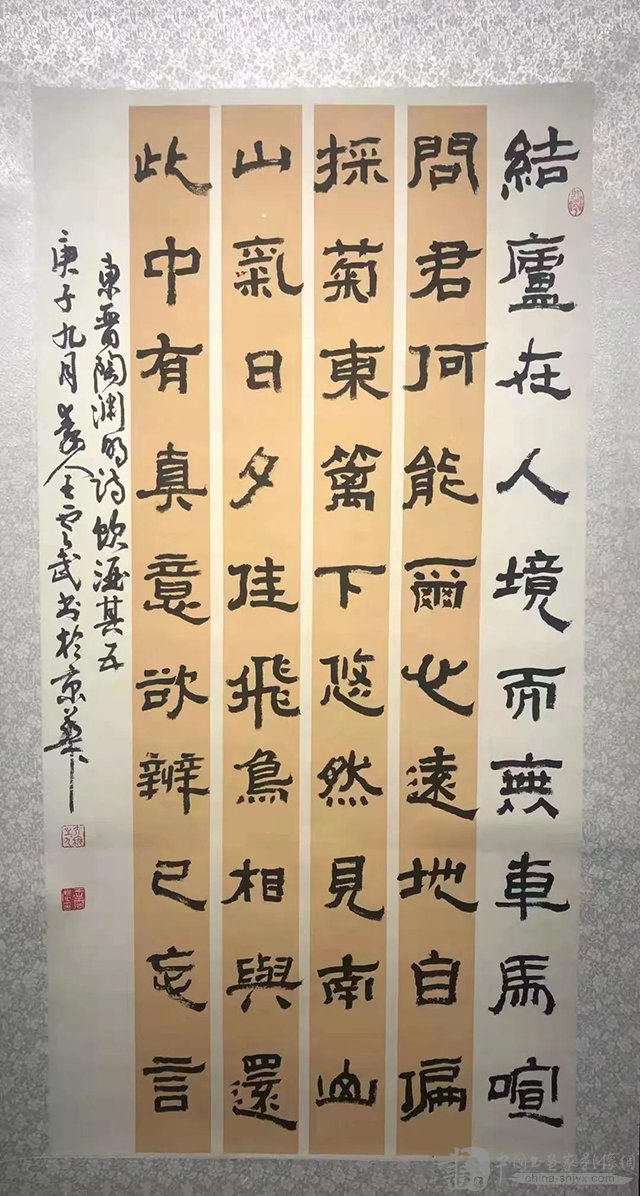 結廬在人境而無車馬喧
問君何能爾心遠地自偏
採菊東籬下悠然見南山
山氣日夕佳飛鳥相與還
此中有真意欲辨已忘言
東晋陶渊明诗飲酒其五
庚子九月 武书於京華
中国工艺家影像網
china-snjyx.com